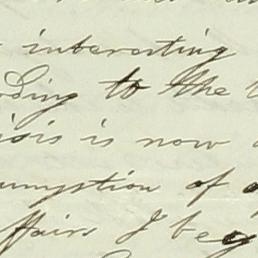 interesting
ding to the
isis is now
umption of
ffairs I beg